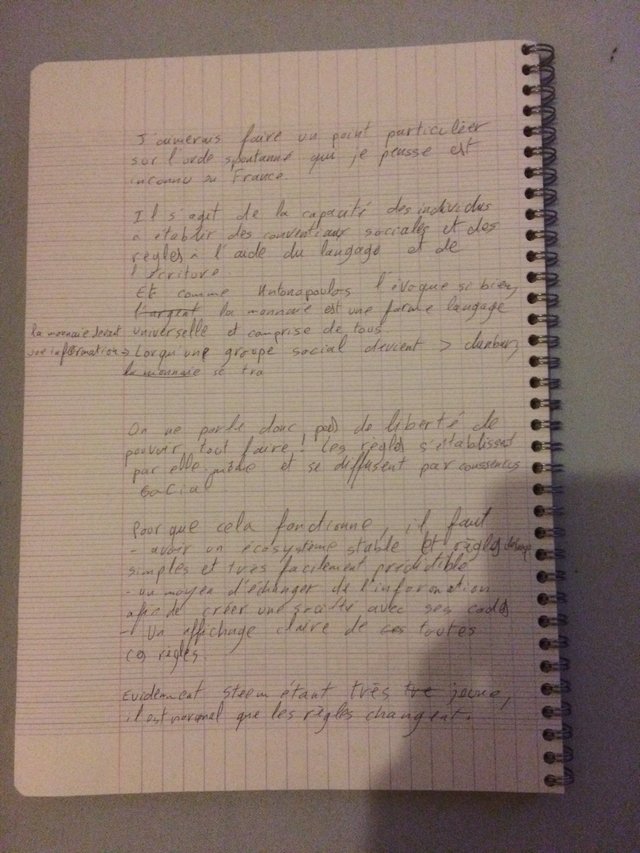 J'aimerais faire un point particulier
sur l'orde spontanné qui je pensse est
inconnu en France
Il s'agit de la capacité des individus
a établir des conventiaux sociales et des
règles a l'aide du langage et de
l'ecriture
Et comme Antonapoulos l'évoque si bien,
l'argent la monnaie est une forme langage
universelle et comprise de tous.
la monnaie devient
une information → Lorqu'une groupe social devient > dunbar,
la monnaie se tra
On ne parle donc pas de liberté de
pouvoir tout faire! Les règles s'établissent
par elle même et se diffusent par conssentus
Social
Pour que cela fonctionne, il faut
- avoir un écosystème stable et règles
simples et très facilement predictible
- un moyen d'échanger de l'information
afin de créer une société avec ses codes
- Un affichage claire de ces toutes
ces règles.
Evidement steem étant très tre jeune,
il est normal que les règles changent.